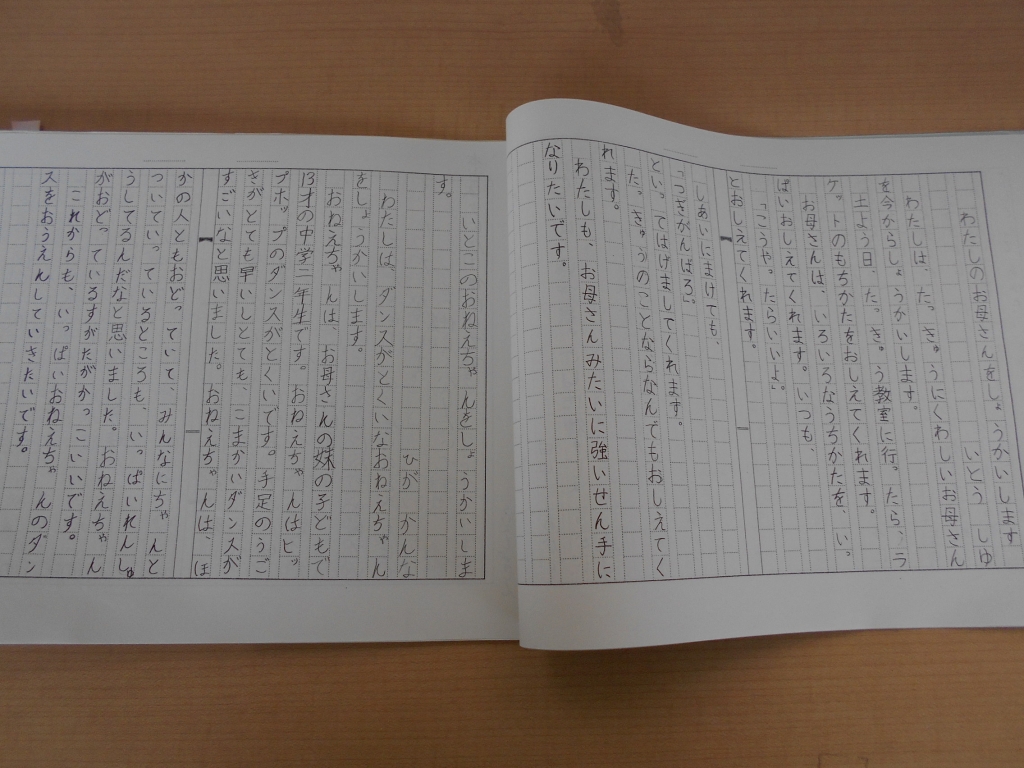 わたしのお母さんをしょうかいします
いとう　しゆ
わたしは、たっきゅうにくわしいお母さん
を今からしょうかいします。
土よう日、たっきゅう教室に行ったら、ラ
ケットのもちかたをおしえてくれます。
お母さんは、いろいろなうちかたを、いっ
ぱいおしえてくれます。いつも、
「こうや。たらいいよ。」
とおしえてくれます。
しあいにまけても、
「つぎがんばろう」
といってはげましてくれます。
たっきゅうのことならなんでもおしえてく
れます。
わたしも、お母さんみたいに強いせん手に
なりたいです。
いとこのおねえちゃんをしょうかいしま
す。
ひが　かんな
わたしは、ダンスがとくいなおねえちゃん
をしょうかいします。
おねえちゃんは、お母さんの妹の子どもで
13才の中学二年生です。おねえちゃんはヒッ
プホップのダンスがとくいです。手足のうご
きがとても早いしとても、こまかいダンスが
すごいなと思いました。おねえちゃんは、ほ
かの人ともおどっていて、みんなにちゃんと
ついていっているところも、いっぱいれんしゅ
うしてるんだなと思いました。おねえちゃん
がおどっているすがたがかっこいいです。
これからも、いっぱいおねえちゃんのダン
スをおうえんしていきたいです。